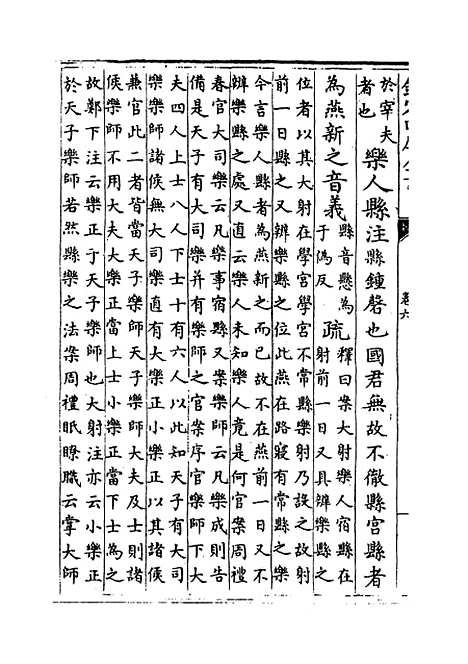 卷六
於宰夫
者也
樂人縣注縣鍾磬也國君無故不徹縣宫縣者
為燕新之音義
縣音懸為
于偽反
疏
釋曰案大射樂人宿縣在
射前一日又具辨樂縣之
位者以其大射在學宫學宫不常縣樂射乃設之故射
前一日縣之又辨樂縣之位此燕在路寢有常縣之樂
今言樂人縣者為燕新之而已故不在燕前一日又不
辨樂縣之處又直云樂人未知樂人竟是何官案周禮
春官大司樂云凡樂事宿縣又案樂師云凡樂成則告
備是天子有大司樂并有樂師之官案序官樂師下大
夫四人上士八人下士十有六人以此知天子有大司
樂樂師諸侯無大司樂直有大樂正小樂正以其諸侯
兼官此二者皆當天子樂師天子樂師大夫及士則諸
侯樂師不用大夫大樂正當上士小樂正當下士為之
故鄭下注云樂正于天子樂師也大射注亦云小樂正
於天子樂師若然縣樂之法案周禮眡瞭職云掌大師